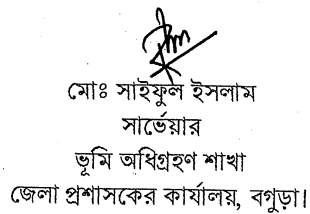 মোঃ সাইফুল ইসলাম
সার্ভেয়ার
ভূমি অধিগ্রহণ শাখা
জেলা প্রশাসকের কার্যালয়, বগুড়া।